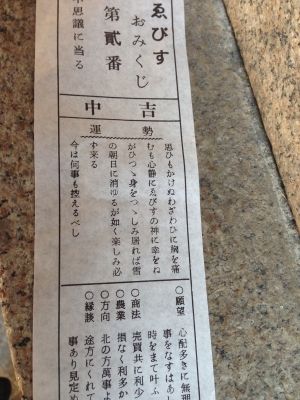 ゑびす
おみくじ
第貳番
不思議に当る
中吉
運勢
思ひもかけぬわざわひに胸を痛
むも心静にゑびすの神に幸をね
がひつゝ身をつゝしみ居れば雪
の朝日に消ゆるが如く楽しみ必
ず来る
今は何事も控えるべし
○願望 心配多きに無理
事をなすはあし
時をまて叶ふ
○商法 売買共に利少
○農業 損なく利多か
○方向 北の方万事よ
○縁談 途方にくれて
事あり見定め